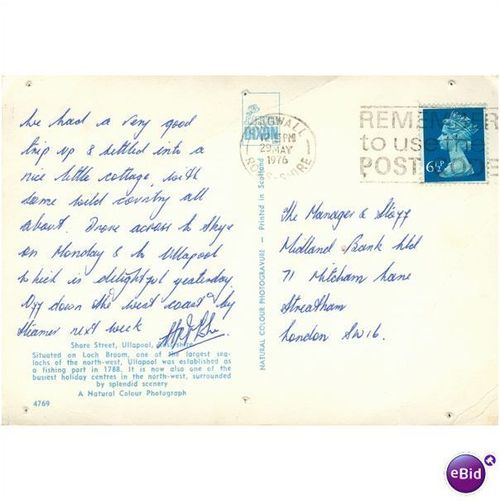 We had a very good
trip up & settled into a
nice little cottage with
some wild country all
about. Drove across to Skye
on Monday & to Ullapool
which is delightful yesterday.
Off down the west coast by
steamer next week
Shore Street, Ullapool,
Situated on Loch Broom, one of the largest sea-
lochs of the north-west, Ullapool was established as
a fishing port in 1788. It is now also one of the
busiest holiday centres in the north-west, surrounded
by splendid scenery
A Natural Colour Photograph
4769
DIXON
NATURAL COLOUR PHOTOGRAVURE - Printed in Scotland
DINGWALL
PM
MAY
1976
ROSS-SHIRE
REMEMBER
to use the
POSTCODE
6½P
The Manager & Staff
Midland Bank Ltd
71 Mitcham Lane
Streatham
London SW16.
eBid